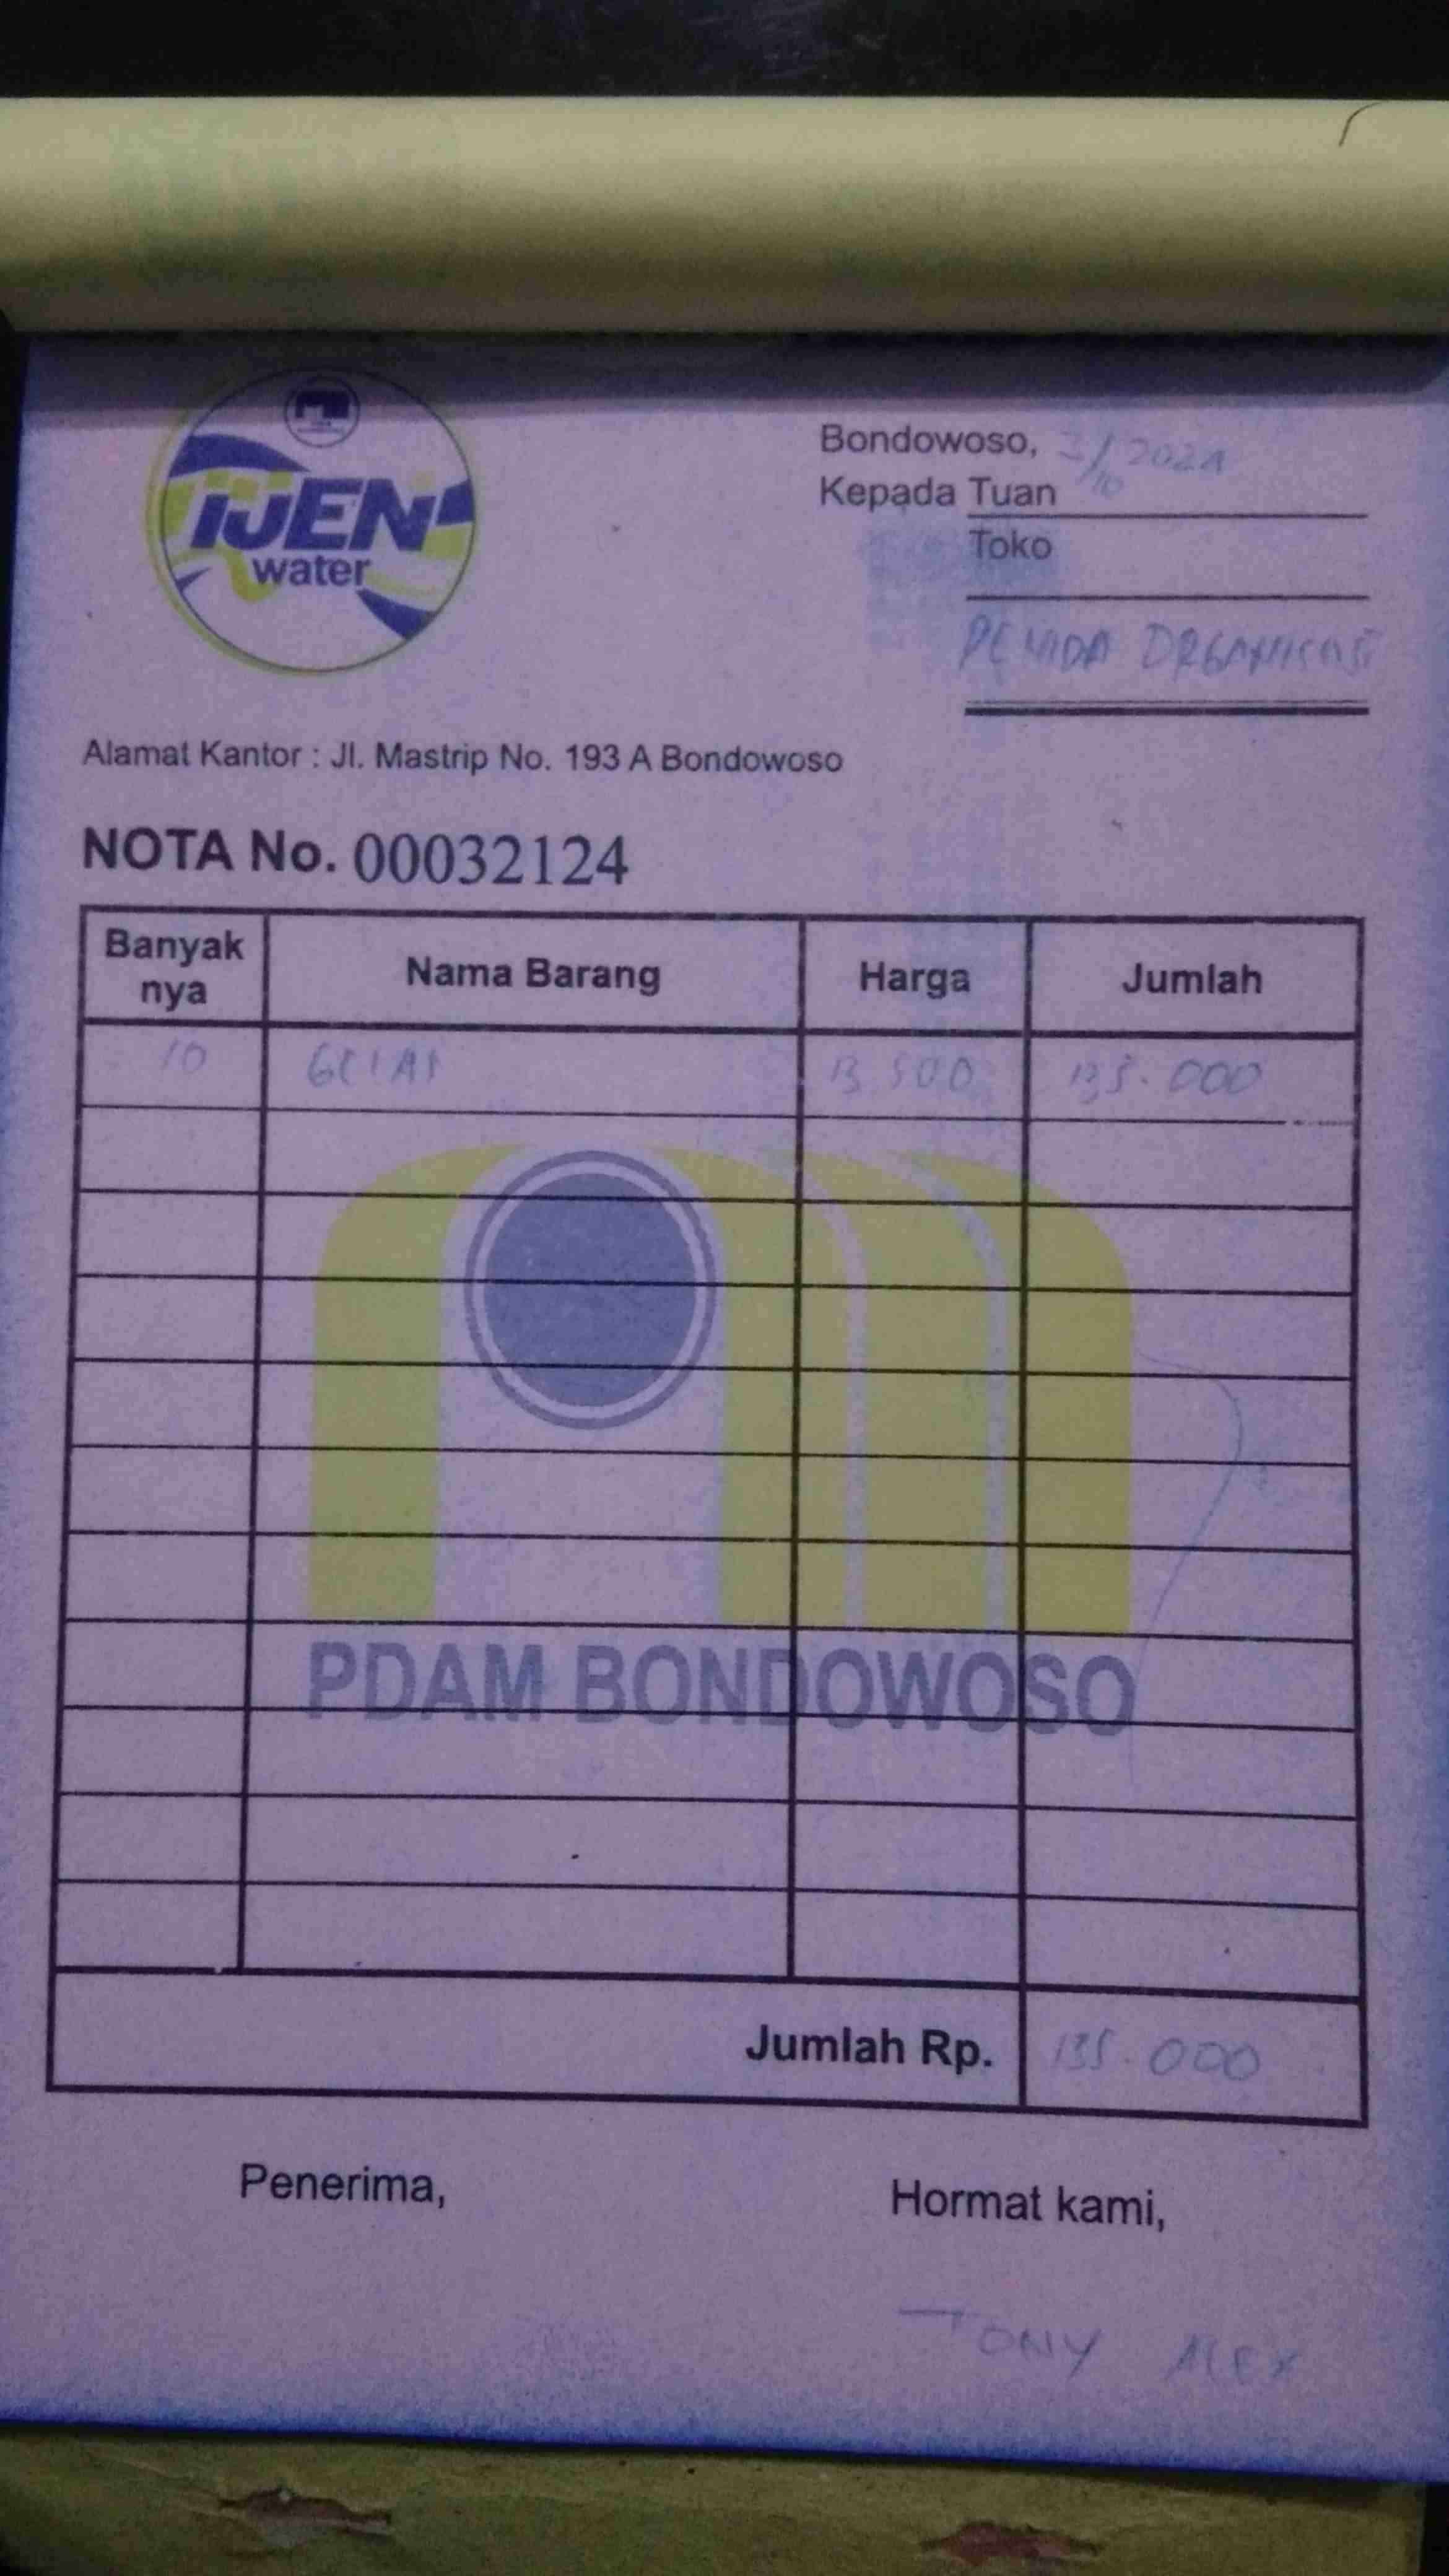 IJEN
water
Bondowoso, /10 2024
Kepada Tuan
Toko
ORGANISASI
Alamat Kantor : Jl. Mastrip No. 193 A Bondowoso
NOTA No. 00032124
Banyak nya Nama Barang Harga Jumlah
10 GELAS 13.500 135.000
PDAM BONDOWOSO
Jumlah Rp. 135.000
Penerima, Hormat kami,
TONY ALEX